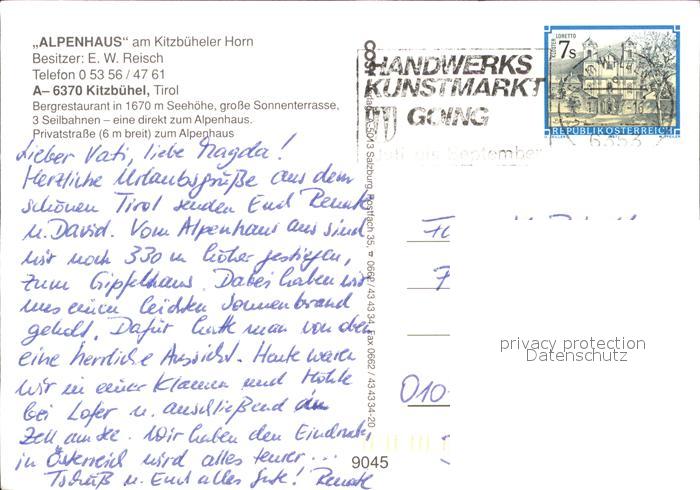 „ALPENHAUS" am Kitzbüheler Horn
Besitzer: E. W. Reisch
Telefon 0 53 56 / 47 61
A–6370 Kitzbühel, Tirol
Bergrestaurant in 1670 m Seehöhe, große Sonnenterrasse,
3 Seilbahnen – eine direkt zum Alpenhaus.
Privatstraße (6 m breit) zum Alpenhaus
Lieber Vati, liebe Magda!
Herzliche Urlaubsgrüße aus dem
schönen Tirol senden Euch Renate
u. David. Vom Alpenhaus aus sind
wir noch 330 m höher gestiegen,
zum Gipfelhaus. Dabei haben wir
uns einen leichten Sonnenbrand
geholt. Dafür hatte man von oben
eine herrliche Aussicht. Heute waren
wir in einer Klamm und Höhle
bei Lofer u. anschließend in
Zell am See. Wir haben den Eindruck,
in Österreich wird alles teurer...
Tschüß u. Euch alles Gute! Renate
HANDWERKS
KUNSTMARKT
GOING
Juli bis September
KLOSTER LORETTO
7s
REPUBLIK ÖSTERREICH
6353
5013 Salzburg, Postfach 35, 0662/43 43 34, Fax 0662/43 43 34-20
010
privacy protection
Datenschutz
9045